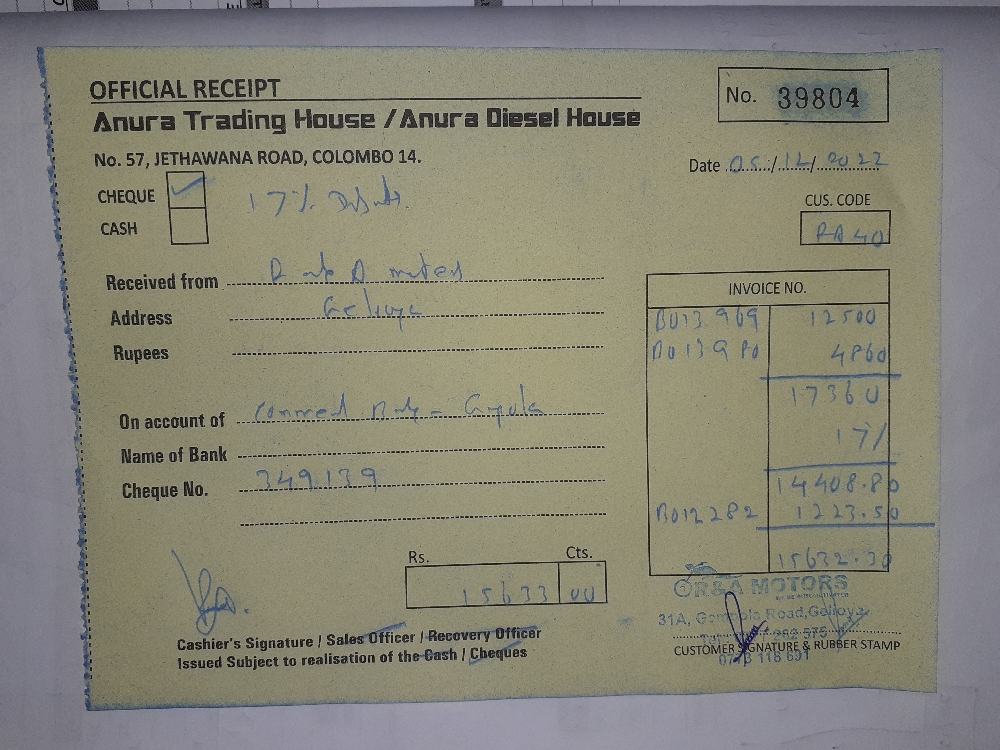 OFFICIAL RECEIPT
No. 39804
Anura Trading House / Anura Diesel House
No. 57, JETHAWANA ROAD, COLOMBO 14.
Date 05/12/2022
CHEQUE
17%
CASH
CUS. CODE
RA 40
Received from
Address Gelioya
Rupees
INVOICE NO.
B013969 12500
B013980 4860
17360
17%
14408.80
B012282 1223.50
15632.30
On account of
Name of Bank
Cheque No. 349139
Rs. Cts.
15633 00
R&A MOTORS
31A, Gampola Road, Gelioya.
Cashier's Signature / Sales Officer / Recovery Officer
Issued Subject to realisation of the Cash / Cheques
CUSTOMER SIGNATURE & RUBBER STAMP